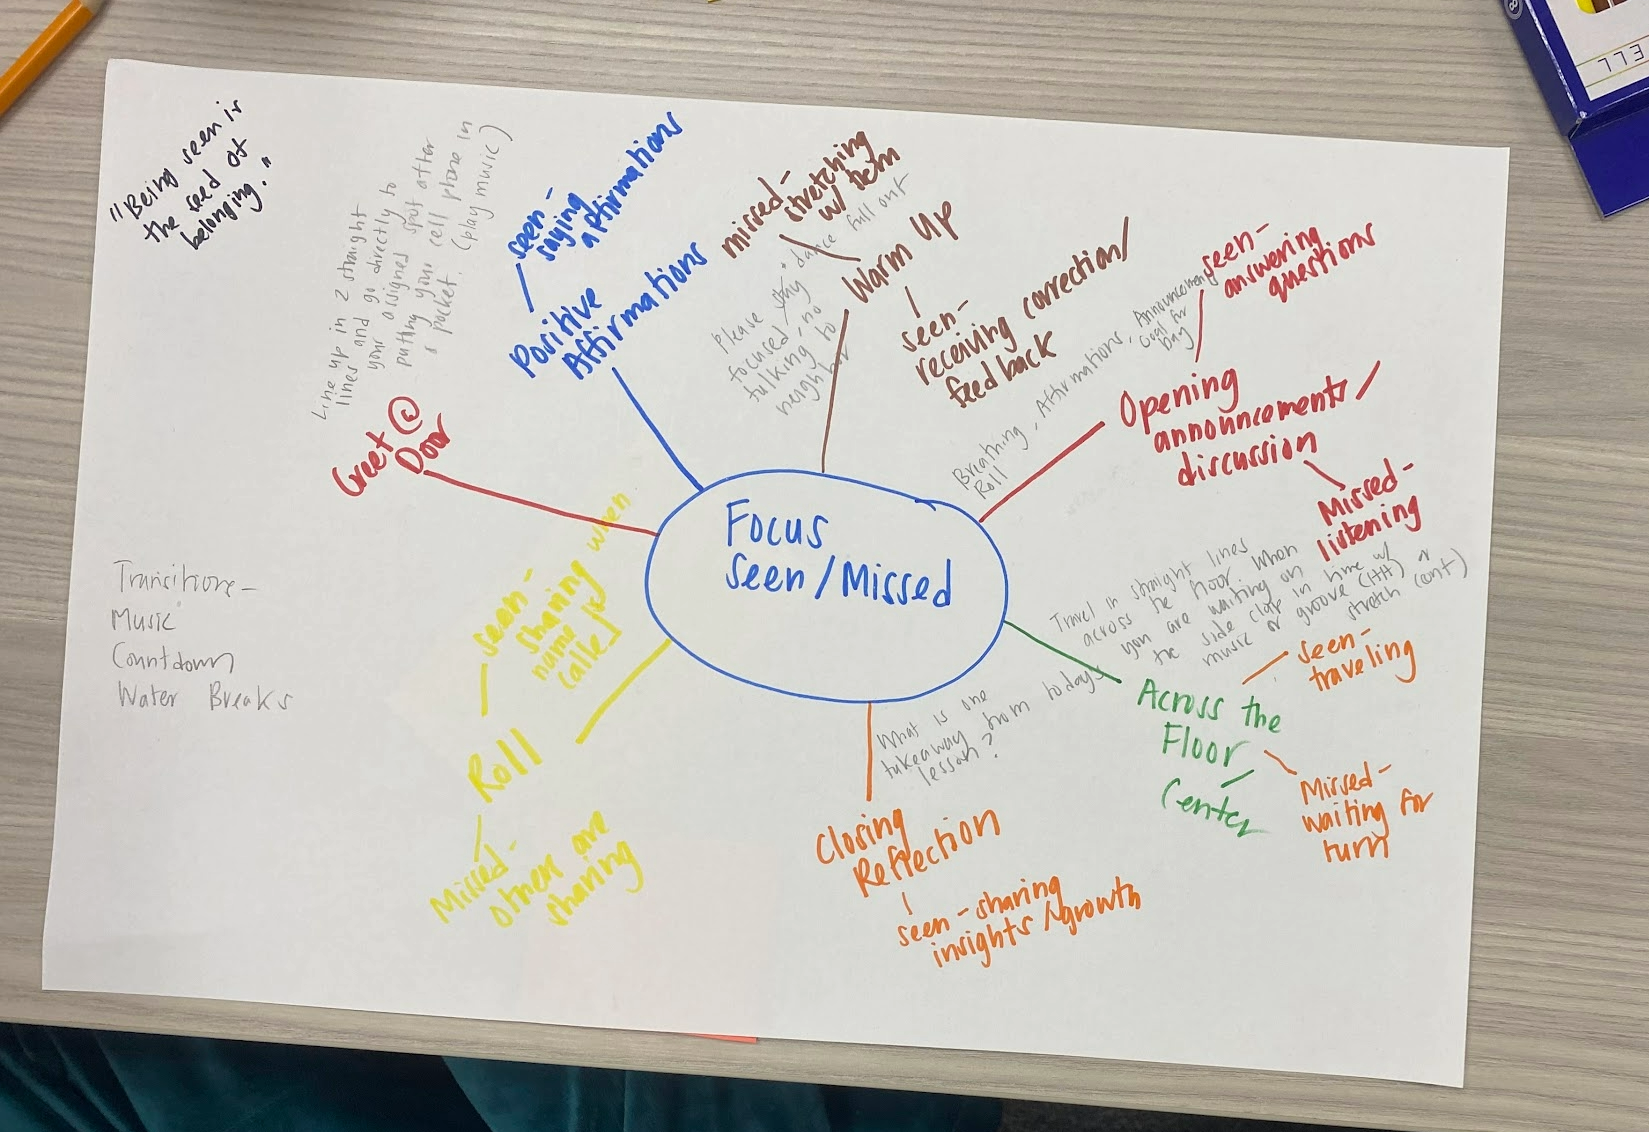 "Being seen is
the seed of
belonging."
Line up in 2 straight
lines and go directly to
your assigned spot after
putting your cell phone in
a pocket. (play music)
Greet @
Door
seen-
saying
affirmations
Positive
Affirmations
missed-
stretching
w/ them
Warm Up
seen-
receiving correction/
feedback
Please stay
focused, no
talking to
neighbor
dance full out
Breathing, Affirmations, Announcements
Roll
Goal for
Day
seen-
answering
questions
Opening
announcements/
discussion
Missed-
listening
Focus
Seen/Missed
Travel in straight lines
across the floor. When
you are waiting on
the side clap in time w/
music or groove (HH) or
stretch (cont)
seen-
traveling
Across the
Floor
Center
Missed-
waiting for
turn
What is one
takeaway from todays
lesson?
Closing
Reflection
seen-sharing
insights/growth
seen-
sharing
name
when
called
Roll
Missed-
others are
sharing
Transitions-
Music
Countdown
Water Breaks
ELL
8